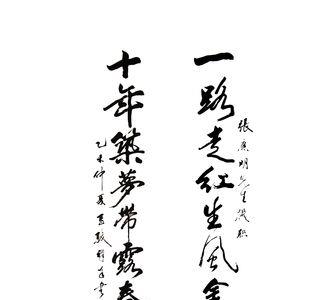 一路走红生风金
張 明先生
十年築夢帶露春
乙未仲夏